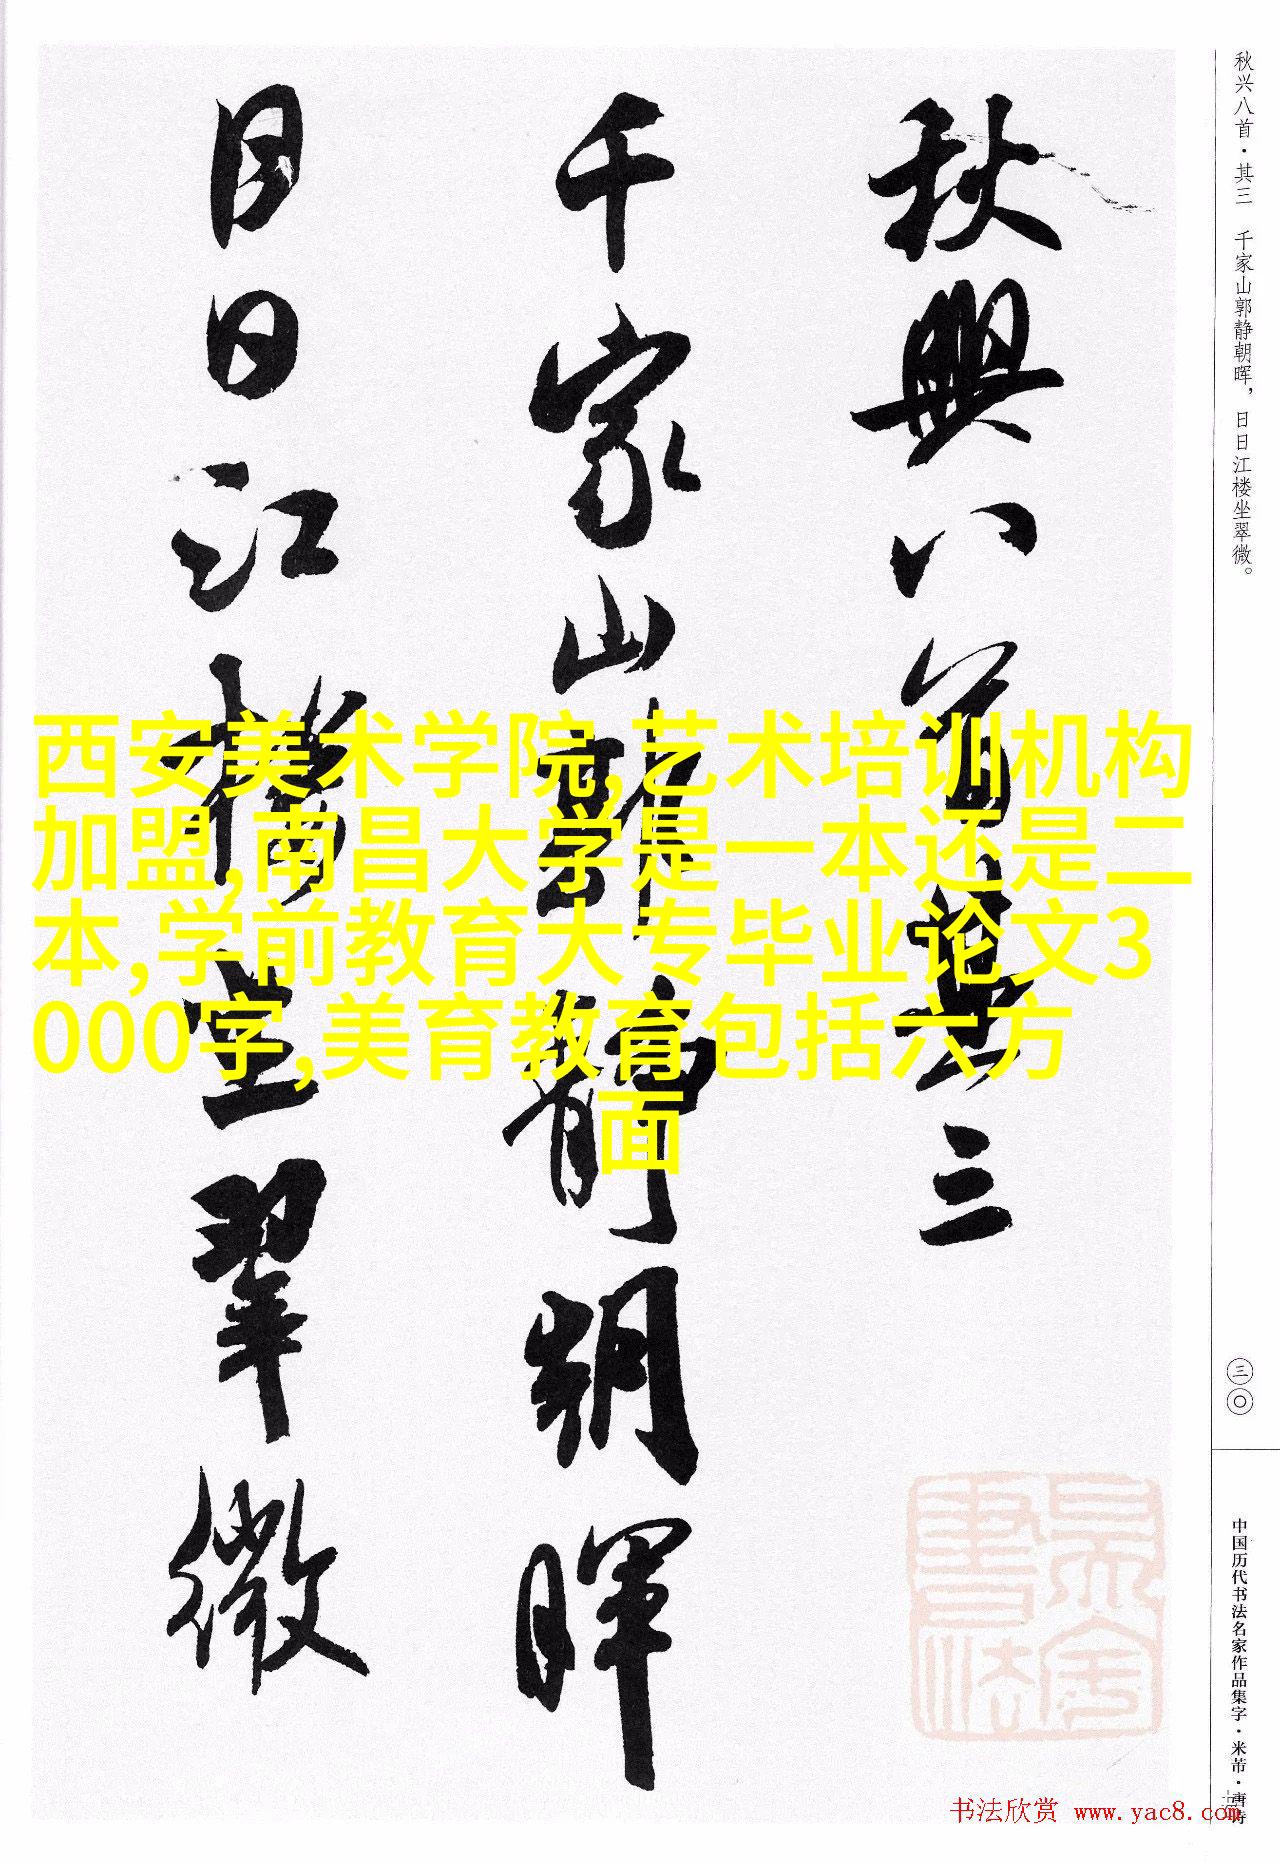 秋兴八首·其三 千家山郭静朝晖，日日江楼坐翠微。
秋興八首其三
千家山郭靜朝暉
日日江樓坐翠微
西安美术学院,艺术培训机构
加盟,南昌大学是一本还是二
本,学前教育大专毕业论文3
000字,美育教育包括六方
面
三〇
中国历代书法名家作品集字·米芾·唐诗
书法欣赏 www.yac8.com